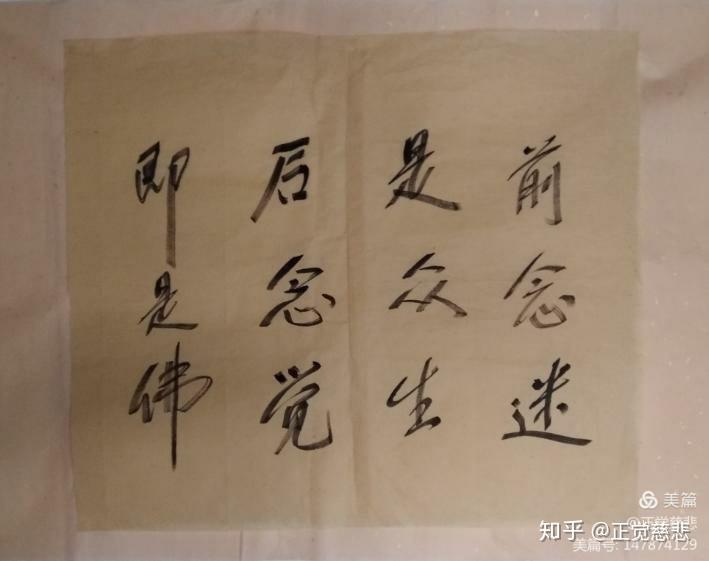 前念迷
是众生
后念觉
即是佛
美篇
@正觉慈悲
知乎 @正觉慈悲
美篇号: 147874129